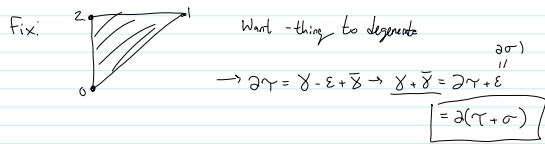 Fix:
2 1
0
Want -thing to degenerate
∂σ)
=
→ ∂τ = γ - ε + γ̄ → γ + γ̄ = ∂τ + ε
= ∂(τ + σ)